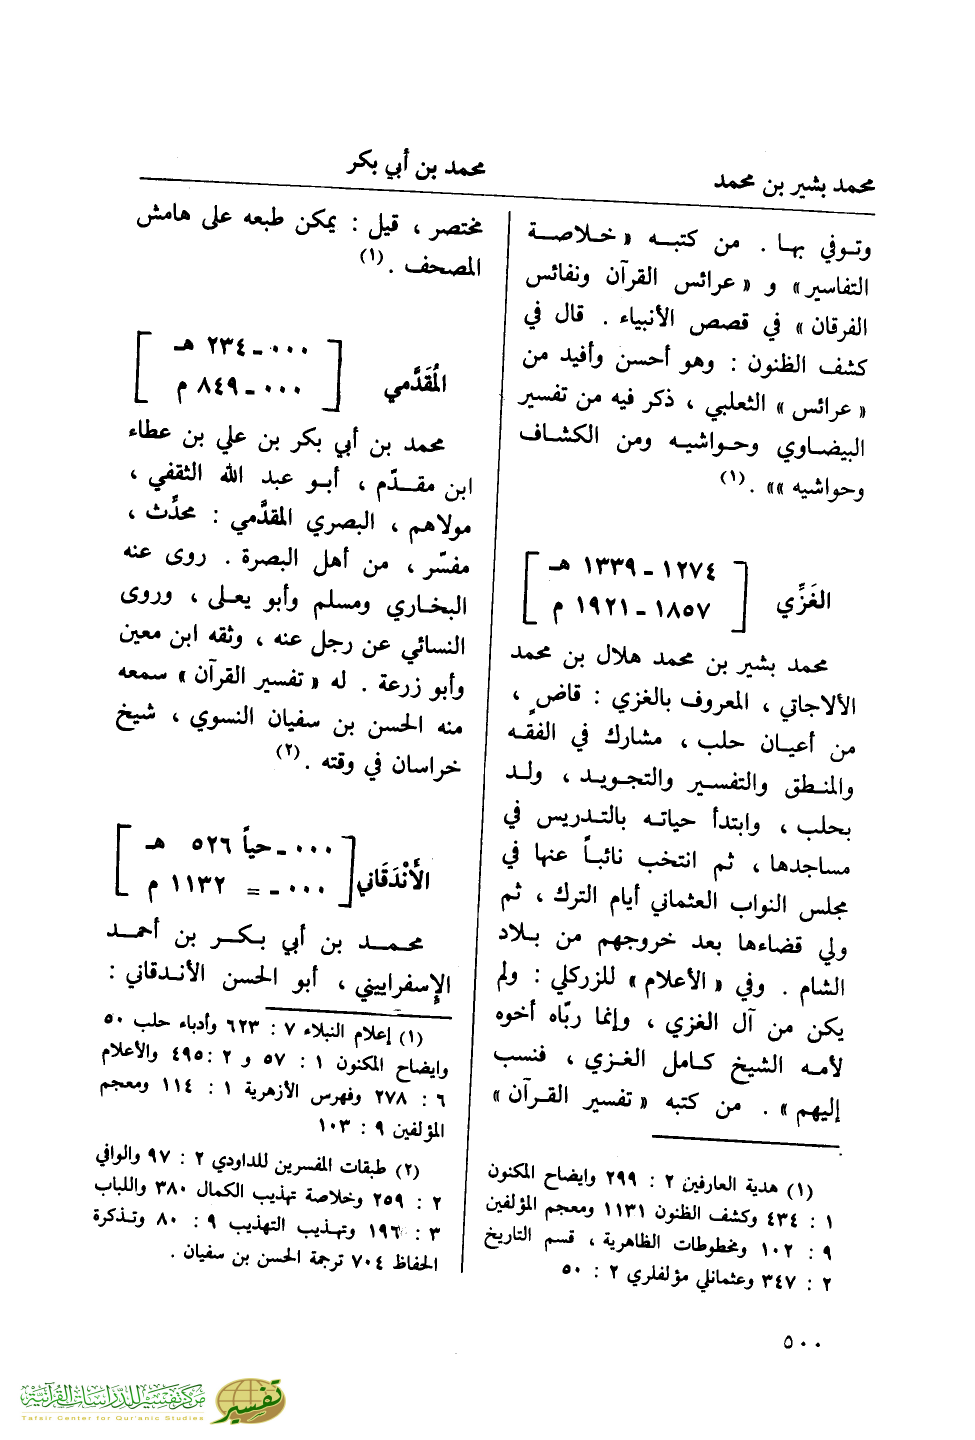 محمد بشير بن محمد
محمد بن أبي بكر
وتوفي بها . من كتبه « خلاصة
التفاسير » و « عرائس القرآن ونفائس
الفرقان » في قصص الأنبياء . قال في
كشف الظنون : وهو أحسن وأفيد من
« عرائس » الثعلبي ، ذكر فيه من تفسير
البيضاوي وحواشيه ومن الكشاف
وحواشيه »» . (١)
الغَزِّي
١٢٧٤ - ١٣٣٩ هـ
١٨٥٧ - ١٩٢١ م
محمد بشير بن محمد هلال بن محمد
الألاجاتي ، المعروف بالغزي : قاضٍ ،
من أعيان حلب ، مشارك في الفقه
والمنطق والتفسير والتجويد ، ولد
بحلب ، وابتدأ حياته بالتدريس في
مساجدها ، ثم انتخب نائباً عنها في
مجلس النواب العثماني أيام الترك ، ثم
ولي قضاءها بعد خروجهم من بلاد
الشام . وفي « الأعلام » للزركلي : ولم
يكن من آل الغزي ، وإنما ربّاه أخوه
لأمه الشيخ كامل الغزي ، فنسب
إليهم » . من كتبه « تفسير القرآن »
(١) هدية العارفين ٢ : ٢٩٩ وايضاح المكنون
١ : ٤٣٤ وكشف الظنون ١١٣١ ومعجم المؤلفين
٩ : ١٠٢ ومخطوطات الظاهرية ، قسم التاريخ
٢ : ٣٤٧ وعثمانلي مؤلفلري ٢ : ٥٠
مختصر ، قيل : يمكن طبعه على هامش
المصحف . (١)
المُقَدَّمي
٠٠٠ - ٢٣٤ هـ
٠٠٠ - ٨٤٩ م
محمد بن أبي بكر بن علي بن عطاء
ابن مقدّم ، أبو عبد الله الثقفي ،
مولاهم ، البصري المقدَّمي : محدِّث ،
مفسّر ، من أهل البصرة . روى عنه
البخاري ومسلم وأبو يعلى ، وروى
النسائي عن رجل عنه ، وثقه ابن معين
وأبو زرعة . له « تفسير القرآن » سمعه
منه الحسن بن سفيان النسوي ، شيخ
خراسان في وقته . (٢)
الأَنْدَقاني
٠٠٠ - حياً ٥٢٦ هـ
٠٠٠ - = ١١٣٢ م
محمد بن أبي بكر بن أحمد
الإسفراييني ، أبو الحسن الأندقاني :
(١) إعلام النبلاء ٧ : ٦٢٣ وأدباء حلب ٥٠
وايضاح المكنون ١ : ٥٧ و ٢ :٤٩٥ والأعلام
٦ : ٢٧٨ وفهرس الأزهرية ١ : ١١٤ ومعجم
المؤلفين ٩ : ١٠٣
(٢) طبقات المفسرين للداودي ٢ : ٩٧ والوافي
٢ : ٢٥٩ وخلاصة تهذيب الكمال ٣٨٠ واللباب
٣ : ١٩٦ وتهذيب التهذيب ٩ : ٨٠ وتذكرة
الحفاظ ٧٠٤ ترجمة الحسن بن سفيان .
٥٠٠
مركز تفسير للدراسات القرآنية
Tafsir Center for Qur'anic Studies
تفسير